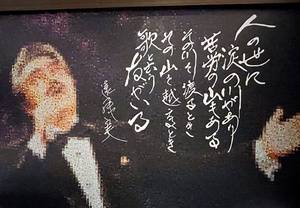 人の世に
涙の川があり
苦労の山もある
その川を渡るとき
その山を越えるとき
歌という友がいる